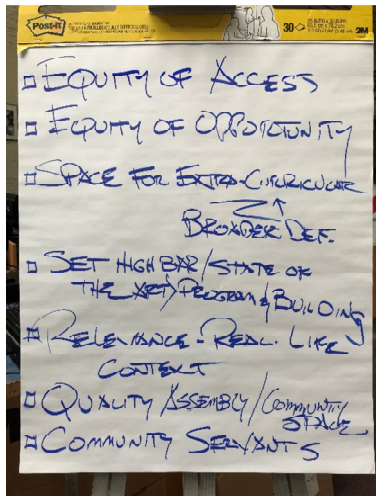 Post-it
30
3M
□ EQUITY OF ACCESS
□ EQUITY OF OPPORTUNITY
□ SPACE FOR EXTRA-CURRICULAR
BROADER DEF.
□ SET HIGH BAR/STATE OF
THE ART > PROGRAM & BUILDING
□ RELEVANCE - REAL. LIFE
CONTEXT
□ QUALITY ASSEMBLY/COMMUNITY
SPACE
□ COMMUNITY SERVANTS